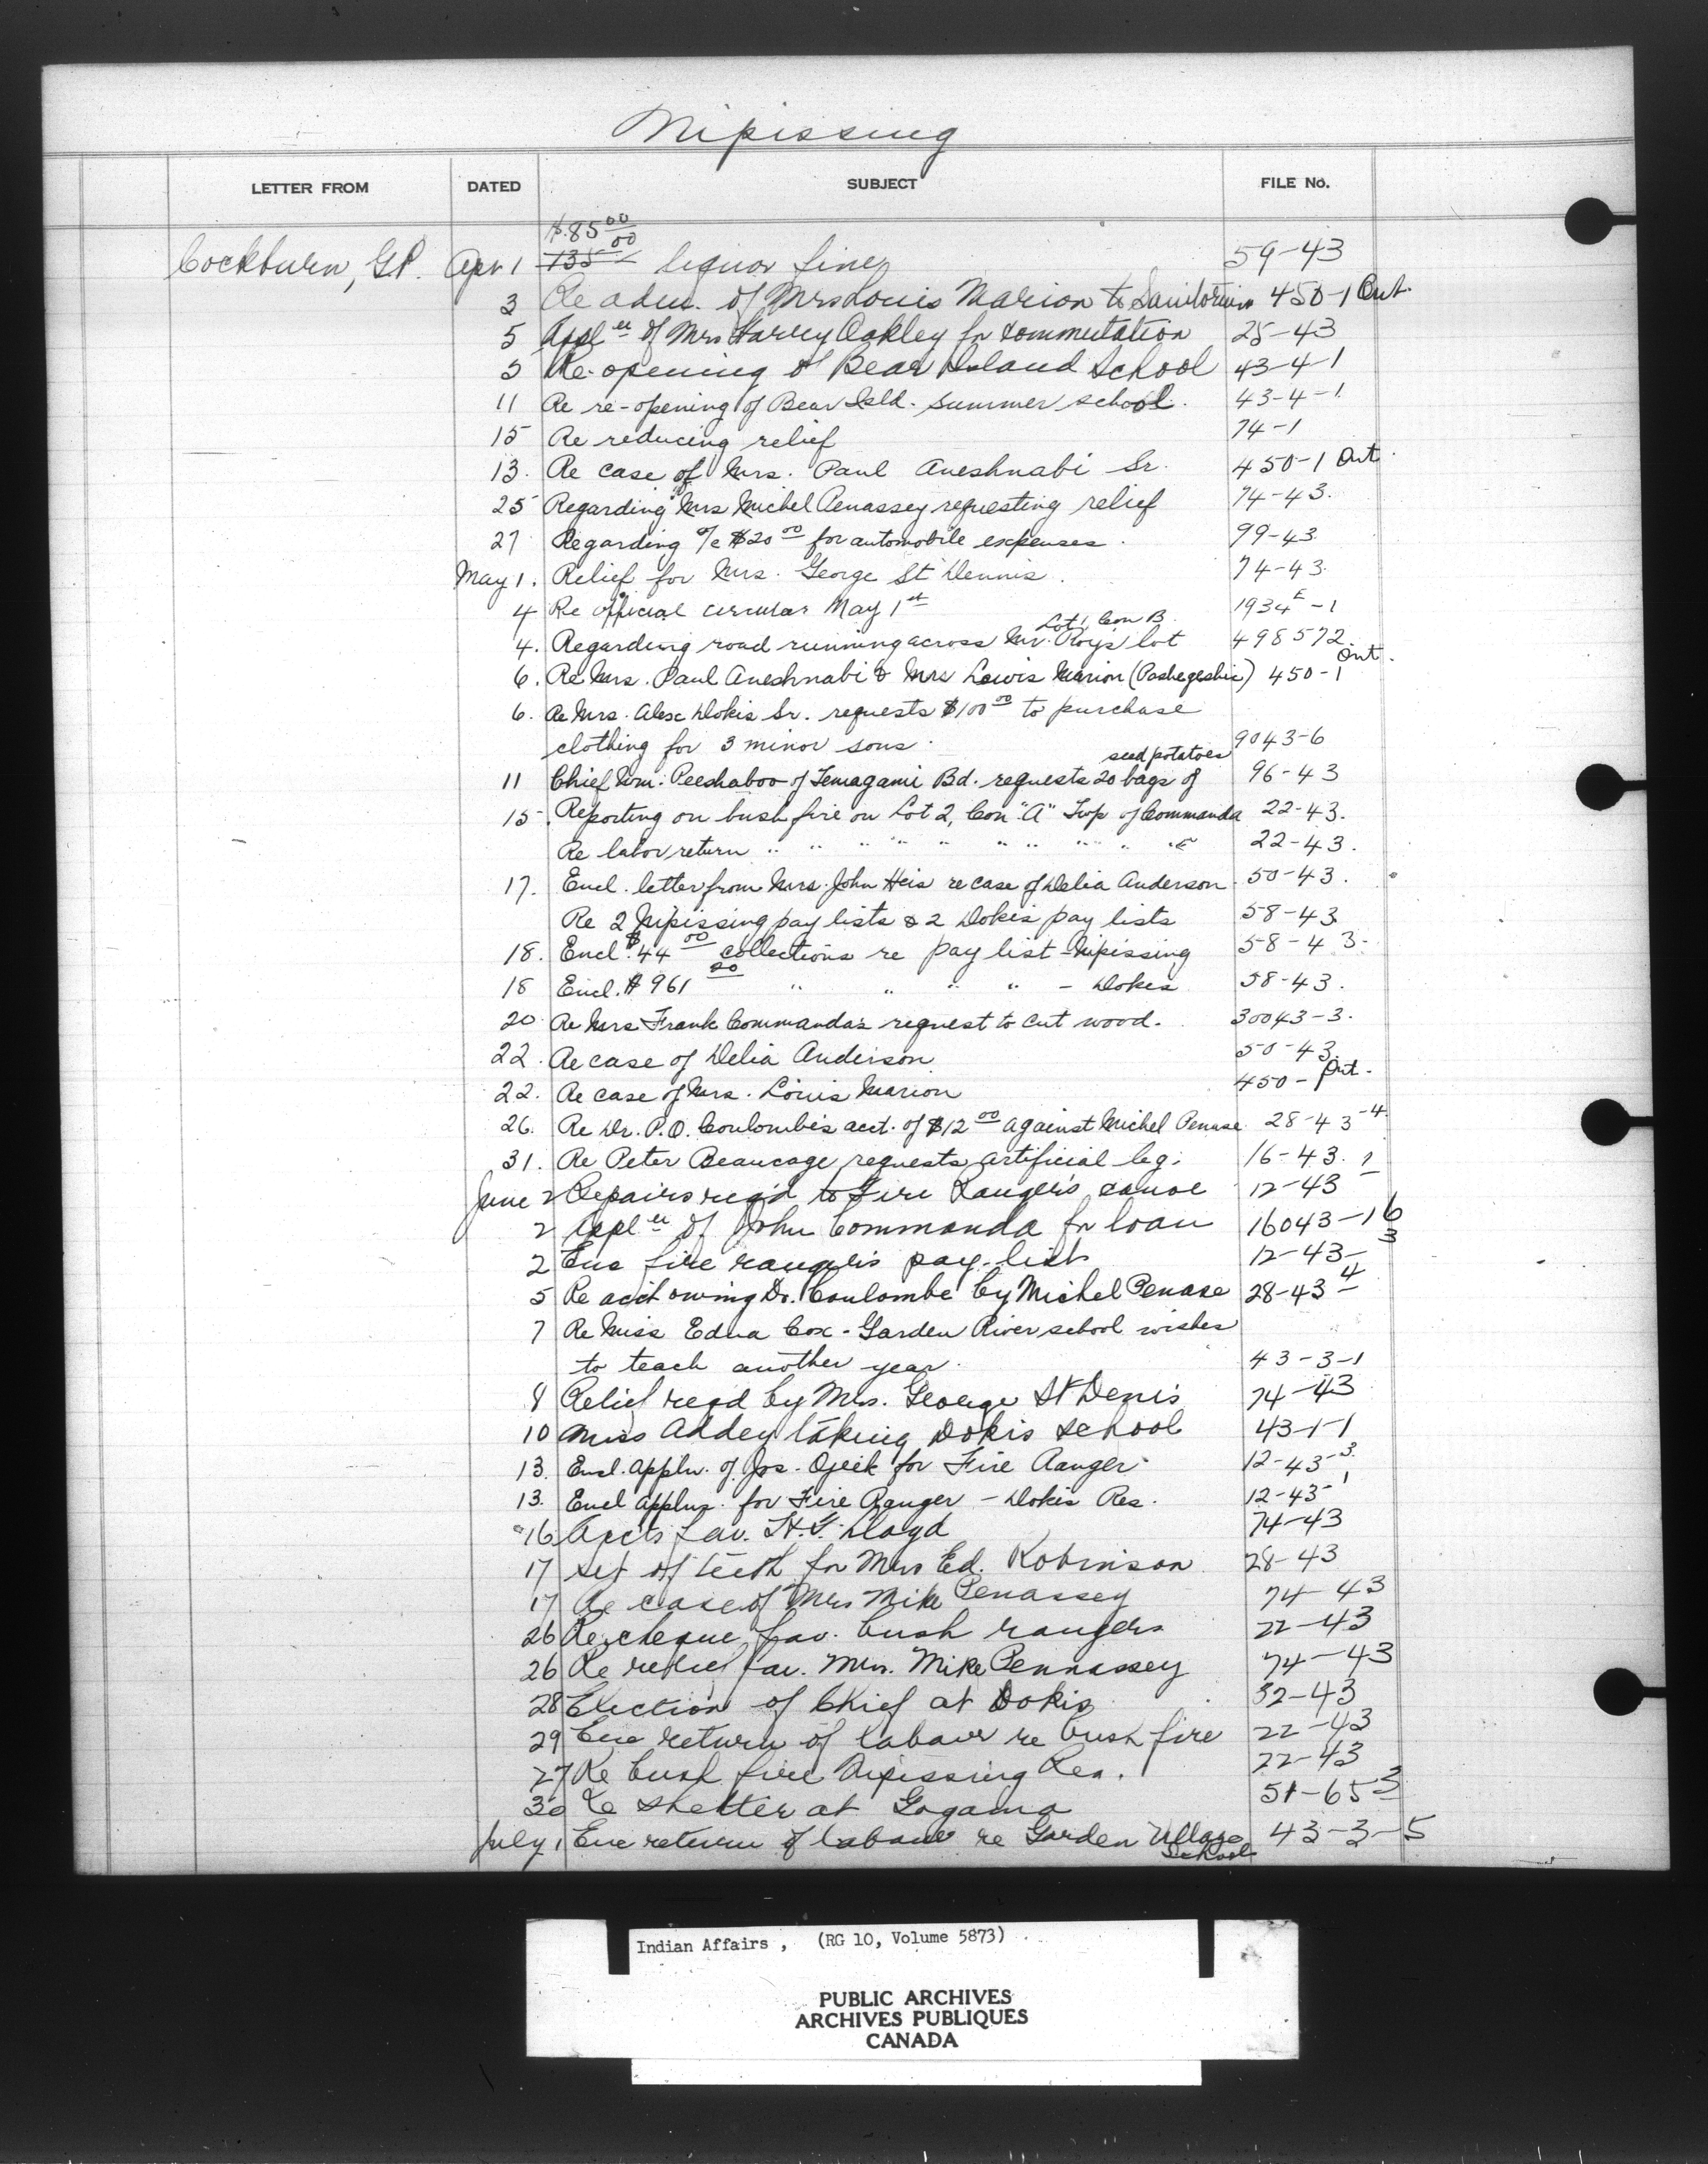 Nipissing
LETTER FROM DATED SUBJECT FILE No.
$85.00
Cockburn, G.P. Apr 1 135.00 liquor fines 59-43
3 Re adm. of Mrs Louis Marion to Sanitorium 450-1 Ont.
5 Appl'n of Mrs Harvey Oakley for commutation 25-43
5 Re opening of Bear Island School 43-4-1
11 Re re-opening of Bear Isld. summer school. 43-4-1.
15 Re reducing relief 74-1
13. Re case of Mrs. Paul Aneshnabi Sr. 450-1 Ont.
25 Regarding Mrs Michel Penassey requesting relief 74-43.
27 Regarding a/c $20.00 for automobile expenses. 99-43
May 1. Relief for Mrs. George St Dennis. 74-43.
4 Re official circular May 1st 1934E-1
Lot 1, Con B
4. Regarding road running across Mr. Roy's lot 498572.
6. Re Mrs. Paul Aneshnabi & Mrs Lewis Marion (Pashegeshic) 450-1 Ont.
6. Re Mrs. Alex Dokis Sr. requests $100.00 to purchase
clothing for 3 minor sons. 9043-6
seed potatoes
11 Chief Wm. Peeshaboo of Temagami Bd. requests 20 bags of 96-43
15. Reporting on bush fire on Lot 2, Con "A" Twp of Commanda 22-43.
Re labor return " " " " " " " " " " 22-43.
17. Encl. letter from Mrs. John Heis re case of Delia Anderson. 50-43.
Re 2 Nipissing pay lists & 2 Dokis pay lists 58-43
18. Encl. $44.00 collections re pay list - Nipissing 58-43.
18 Encl. $961.20 " " " " - Dokis 58-43.
20. Re Mrs Frank Commanda's request to cut wood. 30043-3.
22. Re case of Delia Anderson 50-43.
22. Re case of Mrs. Louis Marion 450-1 Ont.
26. Re Dr. P.O. Coulombe's acct. of $12.00 against Michel Penase 28-43-4
31. Re Peter Beaucage requests artificial leg. 16-43.
June 2 Repairs req'd to Fire Ranger's canoe 12-43-1
2 Appl'n of John Commanda for loan 16043-16
2 Enc fire ranger's pay-list 12-43-3
5 Re acct owing Dr. Coulombe by Michel Penase 28-43-4
7 Re Miss Edna Cox - Garden River school wishes
to teach another year. 43-3-1
8 Relief reqd by Mrs. George St Denis 74-43
10 Miss Addey taking Dokis School 43-1-1
13. Encl. appln. of Jos. Ojeek for Fire Ranger 12-43-3.
13. Encl applns. for Fire Ranger - Dokis Res. 12-43-1
16 Accts fav. H.F. Lloyd 74-43
17 Set of teeth for Mrs Ed. Robinson 28-43
17 Re case of Mrs Mike Penassey 74-43
26 Re cheque fav. bush rangers 22-43
26 Re relief fav. Mrs. Mike Pennassey 74-43
28 Election of Chief at Dokis 32-43
29 Enc return of labour re bush fire 22-43
27 Re bush fire Nipissing Res. 22-43
30 Re shelter at Gogama 51-65-3
July 1 Enc return of labour re Garden Village School 43-3-5
Indian Affairs, (RG 10, Volume 5873)
PUBLIC ARCHIVES
ARCHIVES PUBLIQUES
CANADA